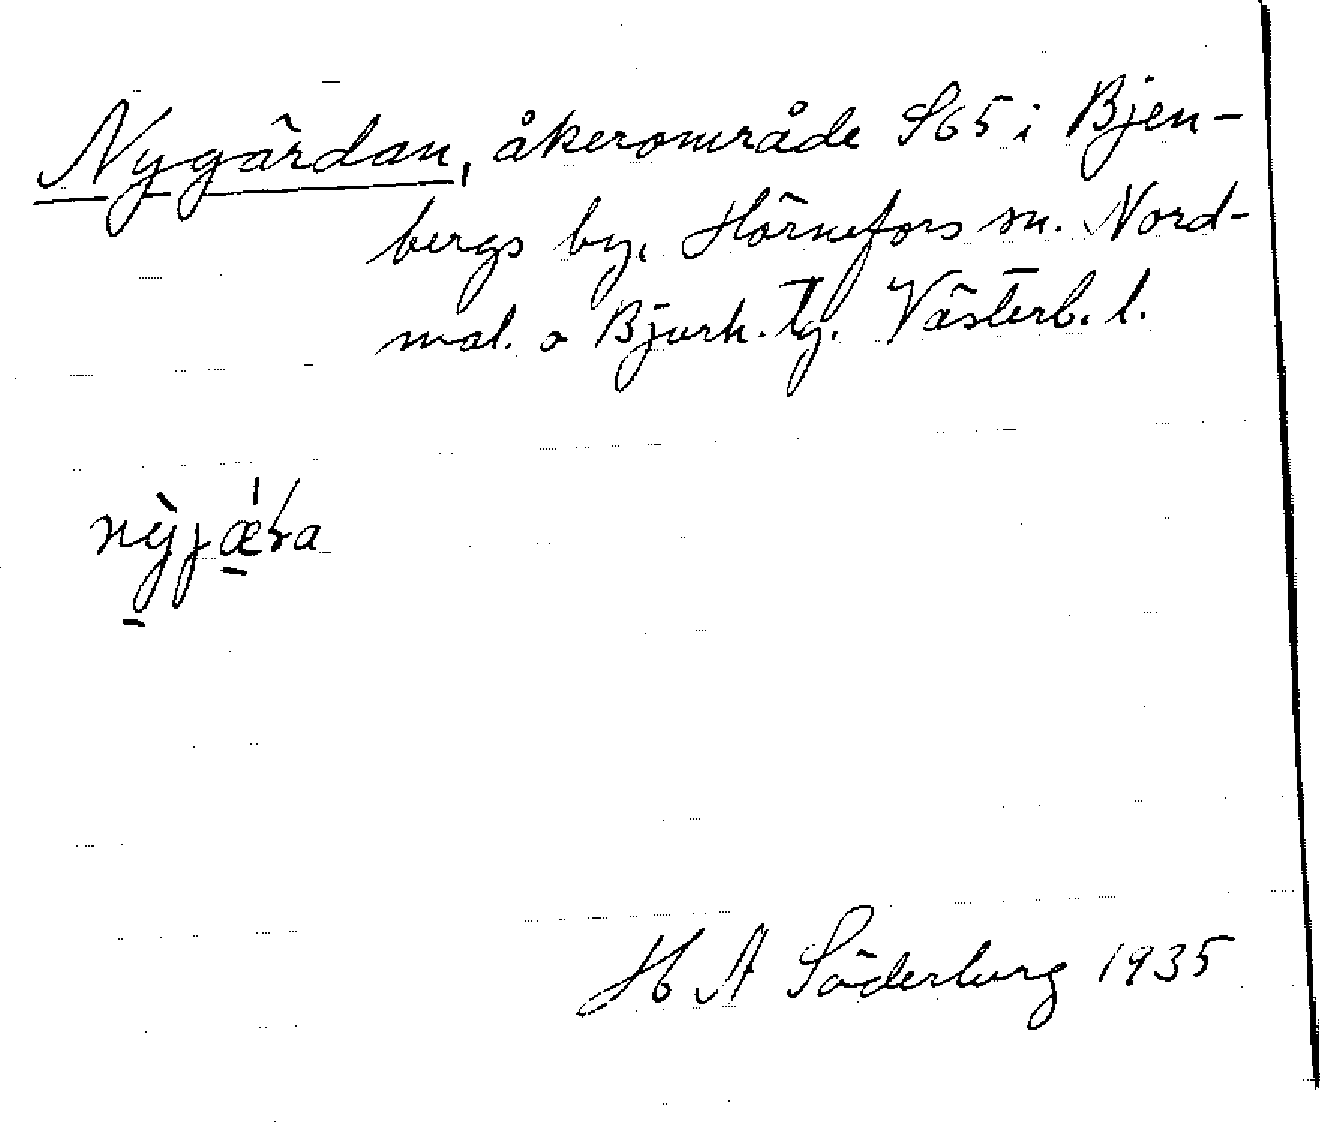 Nygärdan, åkerområde S65 i Bjen-
bergs by, Hörnefors sn. Nord-
mal. o Bjurh. tg. Västerb. l.
H A Söderberg 1935